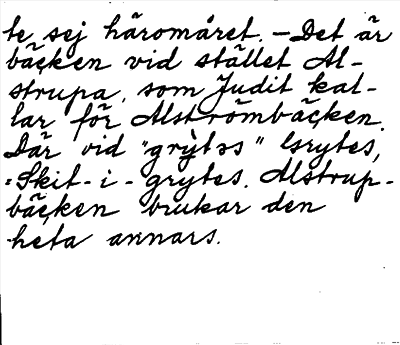 te sej häromåret. – Det är
bäcken vid stället Al-
strupa, som Judit kal-
lar för Alströmbäcken.
Där vid "grỳtəs" Grytes,
= Skit-i-grytes. Alstrup-
bäcken brukar den
heta annars.